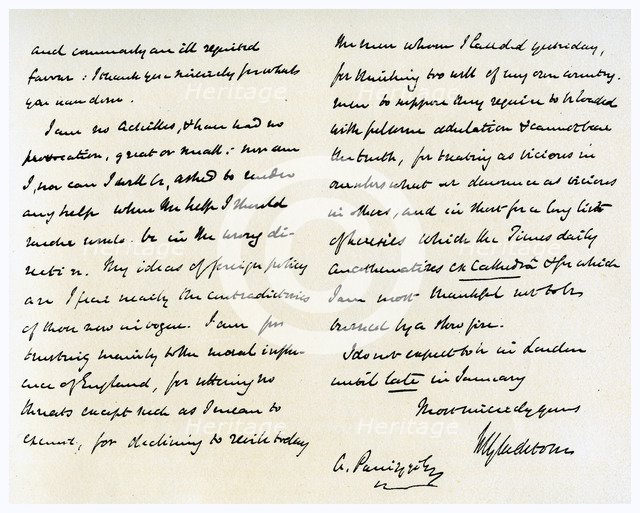 and commonly an ill requited
favour: I thank you sincerely for what
you have done.
I am no Achilles, & have had no
provocation, great or small: nor am
I, nor can I well be, asked to render
any help when the help I should
render would be in the wrong di-
rection. My ideas of foreign policy
are I fear nearly the contradictories
of those now in vogue. I am for
trusting mainly to the moral influ-
ence of England, for uttering no
threats except such as I mean to
execute, for declining to revile today
the men whom I lauded yesterday,
for thinking too well of my own country
men to suppose they require to be loaded
with fulsome adulation & cannot bear
the truth, for treating as vicious in
ourselves what we denounce as vicious
in others, and in short for a long list
of heresies which the Times daily
anathematizes ex Cathedrâ & for which
I am most thankful not to be
burned by a slow fire.
I do not expect to be in London
until late in January
Most sincerely yours
WEGladstone
A. Panizzi Esq
Heritage
Heritage
Heritage
Heritage
Heritage